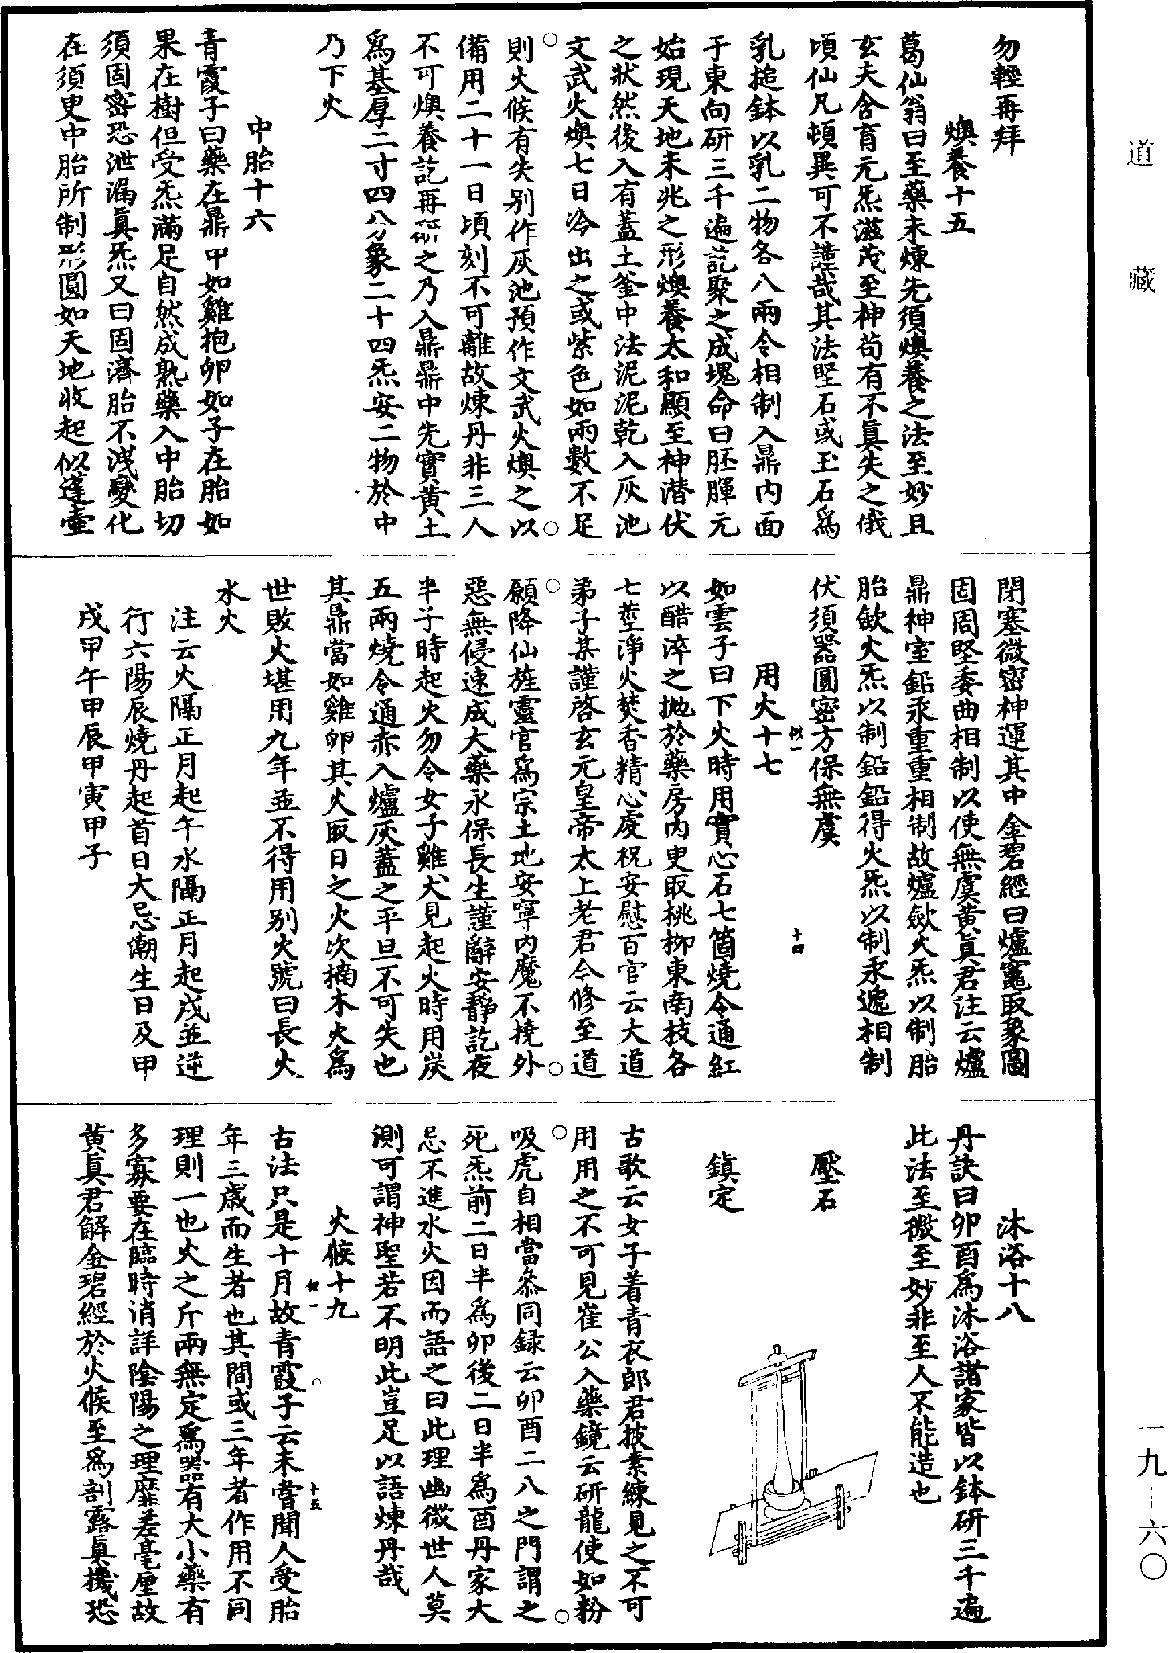 道藏
勿輕再拜
燠養十五
葛仙翁曰至藥未煉先須燠養之法至妙且
玄夫含育元炁滋茂至神苟有不真失之俄
頃仙凡頓異可不謹哉其法堅石或玉石為
乳搥鉢以乳二物各八兩令相制入鼎內面
于東向研三千遍訖聚之成塊命曰胚腪元
始現天地未兆之形燠養太和顯至神潛伏
之狀然後入有蓋土釜中法泥泥乾入灰池
文武火燠七日冷出之或紫色如兩數不足
則火候有失別作灰池預作文武火燠之以
備用二十一日頃刻不可離故煉丹非三人
不可燠養訖再研之乃入鼎鼎中先實黃土
為基厚二寸四八分象二十四炁安二物於中
乃下火
中胎十六
青霞子曰藥在鼎中如雞抱卵如子在胎如
果在樹但受炁滿足自然成熟藥入中胎切
須固密恐泄漏真炁又曰固濟胎不洩變化
在須臾中胎所制形圓如天地收起似蓬壺
閉塞微密神運其中金碧經曰爐竈取象圖
固周堅委曲相制以使無虞黃真君注云爐
鼎神室鉛汞重重相制故爐歛火炁以制胎
胎歛火炁以制鉛鉛得火炁以制汞遞相制
伏須器圓密方保無虞
十四
用火十七
如雲子曰下火時用實心石七箇燒令通紅
以醋淬之拋於藥房內更取桃柳東南枝各
七莖淨火焚香精心虔祝安慰百官云大道
弟子某謹啓玄元皇帝太上老君今修至道
願降仙旌靈官為宗土地安寧內魔不撓外
惡無侵速成大藥永保長生謹辭安靜訖夜
半子時起火勿令女子雞犬見起火時用炭
五兩燒令通赤入爐灰蓋之平旦不可失也
其鼎當如雞卵其火取日之火次楠木火為
世敗火堪用九年並不得用別火號曰長火
水火
注云火隔正月起午水隔正月起戌並逆
行六陽辰燒丹起首日大忌潮生日及甲
戌甲午甲辰甲寅甲子
沐浴十八
丹訣曰卯酉為沐浴諸家皆以鉢研三千遍
此法至微至妙非至人不能造也
壓石
鎮定
古歌云女子着青衣郎君披素練見之不可
用用之不可見崔公入藥鏡云研龍使如粉
吸虎自相當叅同録云卯酉二八之門謂之
死炁前二日半為卯後二日半為酉丹家大
忌不進水火因而語之曰此理幽微世人莫
測可謂神聖若不明此豈足以語煉丹哉
火候十九
十五
古法只是十月故青霞子云未嘗聞人受胎
年三歲而生者也其間或三年者作用不同
理則一也火之斤兩無定為器有大小藥有
多寡要在臨時消詳陰陽之理靡差毫厘故
黃真君解金碧經於火候至為剖露真機恐
一九-六〇